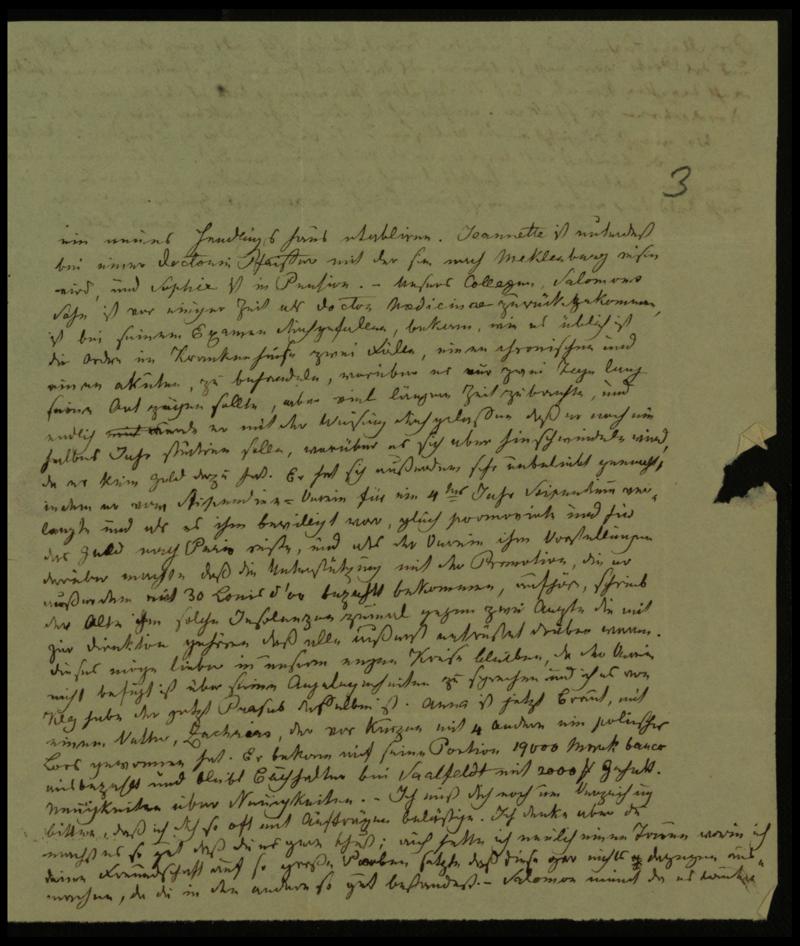 3
ein neues Handlungshaus etabliren. Jeannette ist unterdeß
bei einer Doctorin Pfeiffer mit der sie nach Meklenburg reisen
wird, und Sophie ist in Pension. – Unsers Collegen, Salomons
Sohn ist vor einiger Zeit als Doctor Medicinae zurückgekommen,
ist bei seinem Examen durchgefallen, bekam, wie es üblich ist
die Ordre im Krankenhause zwei Fälle, einen chronischen und
einen akuten, zu behandeln, worüber er nur zwei Tage lang
seine Art zeigen sollte, aber viel längere Zeit zubrachte, und
endlich wurde er mit der Weisung durchgelassen daß er noch ein
halbes Jahr studiren solle, worüber er sich aber hinschwindeln wird,
da er kein Geld dazu hat. Er hat sich außerdem sehr unbeliebt gemacht,
indem er vom Stipendien-Verein für ein 4tes Jahr Stipendium ver-
langte und als es ihm bewilligt war, gleich promovirte und für
das Geld nach Paris reiste, und als der Verein ihm Vorstellungen
darüber machte daß die Unterstützung mit der Promotion, die er
außerdem mit 30 Louis d'or bezahlt bekommen, aufhöre, schrieb
der Alte ihm solche Insolenzen zumal gegen zwei Aerzte die mit
zur Direktion gehören daß alle äußerst entrüstet drüber waren.
Dieses möge lieber in unserm engen Kreise bleiben, da der Verein
nicht befugt ist über seine Angelegenheiten zu sprechen und ich es von
habe der jetzt Präses desselben ist. Anna ist jetzt Braut, mit
einem Vetter, Zacharias, der vor Kurzem mit 4 andern ein polnisches
Loos gewonnen hat. Er bekam auf seine Portion 19000 Mark banco
ausbezahlt und bleibt Buchhalter bei Saalfeldt mit 2000 Gehalt.
Neuigkeiten über Neuigkeiten. – Ich muß dich noch um Verzeihung
bitten, daß ich dich so oft mit Aufträgen belästige. Ich denke aber du
machst es so gut daß du es gern thust; auch hatte ich neulich einen Traum worin ich
deine Freundschaft auf so große Proben setzte daß diese gar nichts dagegen aus-
machen, da du in den andern so gut bestandest. – Salomon meint da es